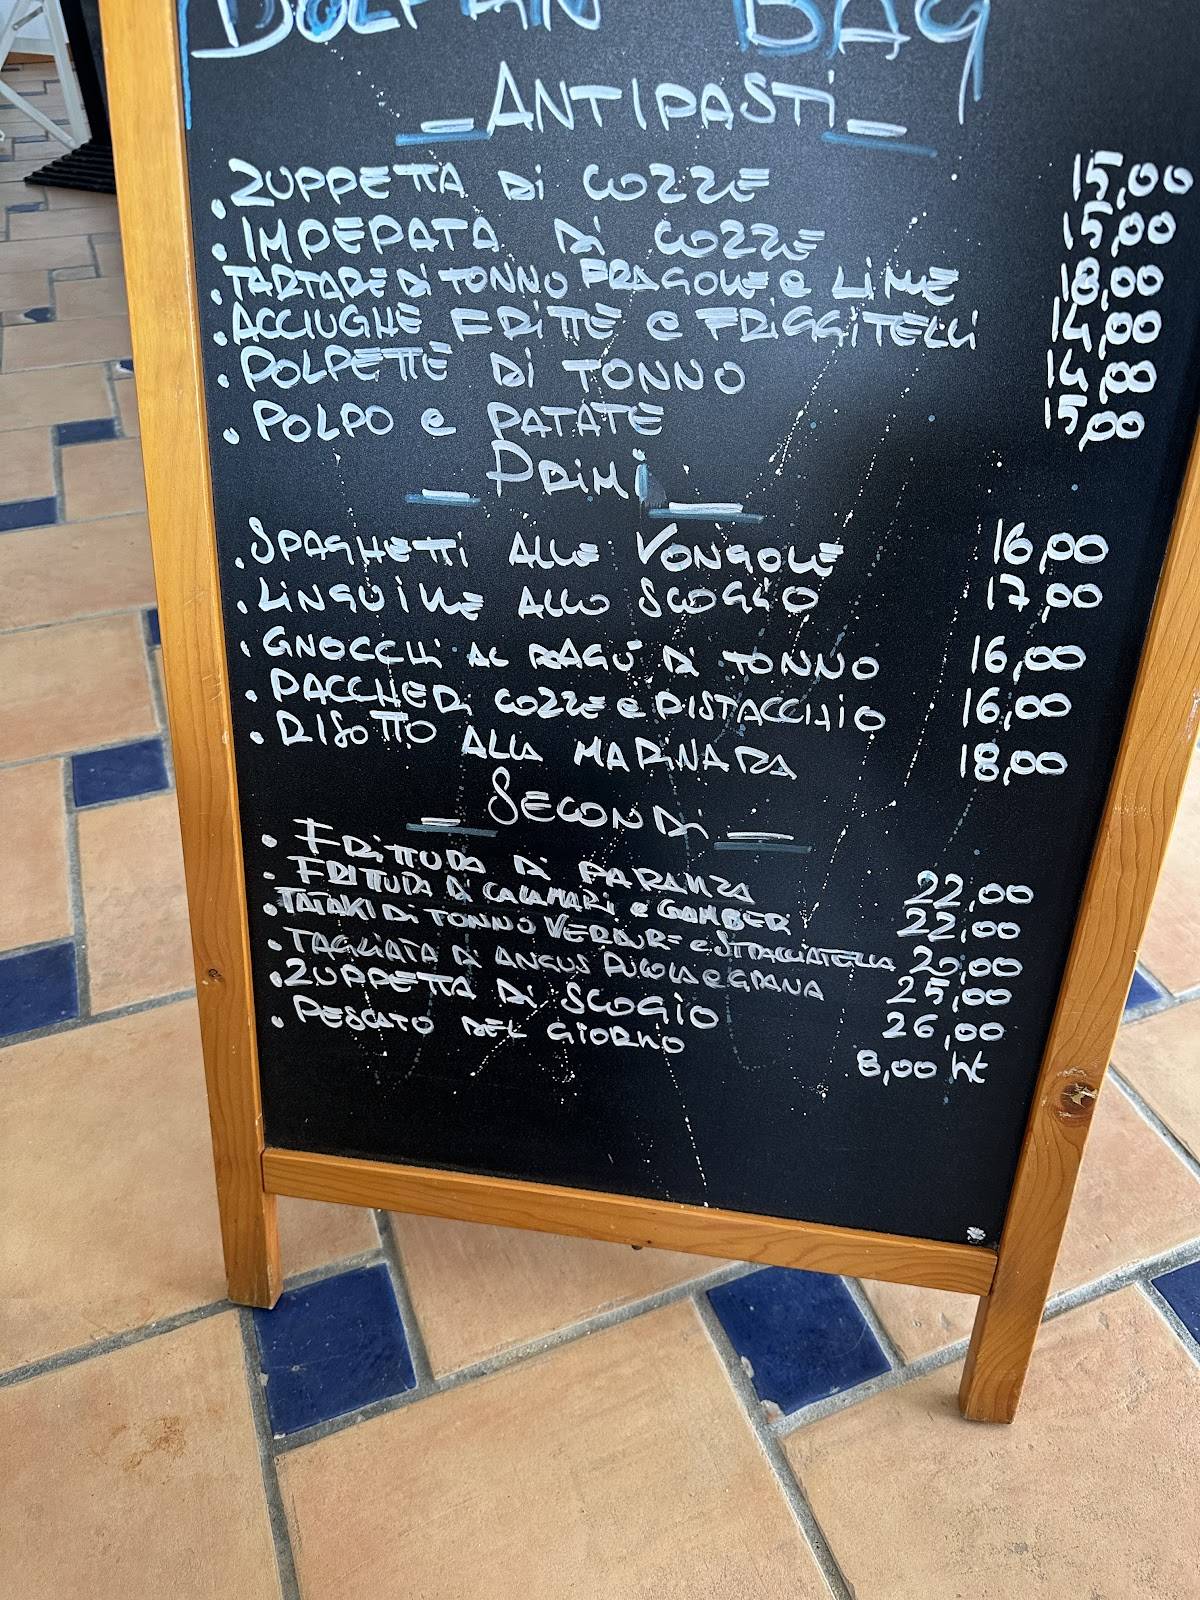 DOLPHIN BAY
_ANTIPASTI_
. ZUPPETTA Di COZZE 15,00
. IMPEPATA Di COZZE 15,00
. TARTARE Di TONNO FRAGOLE e LIME 18,00
. ACCIUGHE FRITTE e FRIGGITELLI 14,00
. POLPETTE Di TONNO 14,00
. POLPO e PATATE 15,00
_ PRiMi _
. SPAGHETTi ALLE VONGOLE 16,00
. LiNGUiNE ALLO SCOGLiO 17,00
. GNOCCHi AL RAGÚ Di TONNO 16,00
. PACCHERi COZZE e PISTACCHiO 16,00
. RISOTTO ALLA MARINARA 18,00
_ SECONDi _
. FRiTTURA Di PARANZA 22,00
. FRITTURA Di CALAMARi e GAMBERi 22,00
. TATAKI Di TONNO VERDURE e STRACCIATELLA 20,00
. TAGLIATA Di ANGUS RUCOLA e GRANA 25,00
. ZUPPETTA Di SCOGIO 26,00
. PESCATO DEL GiORNO 8,00 ht